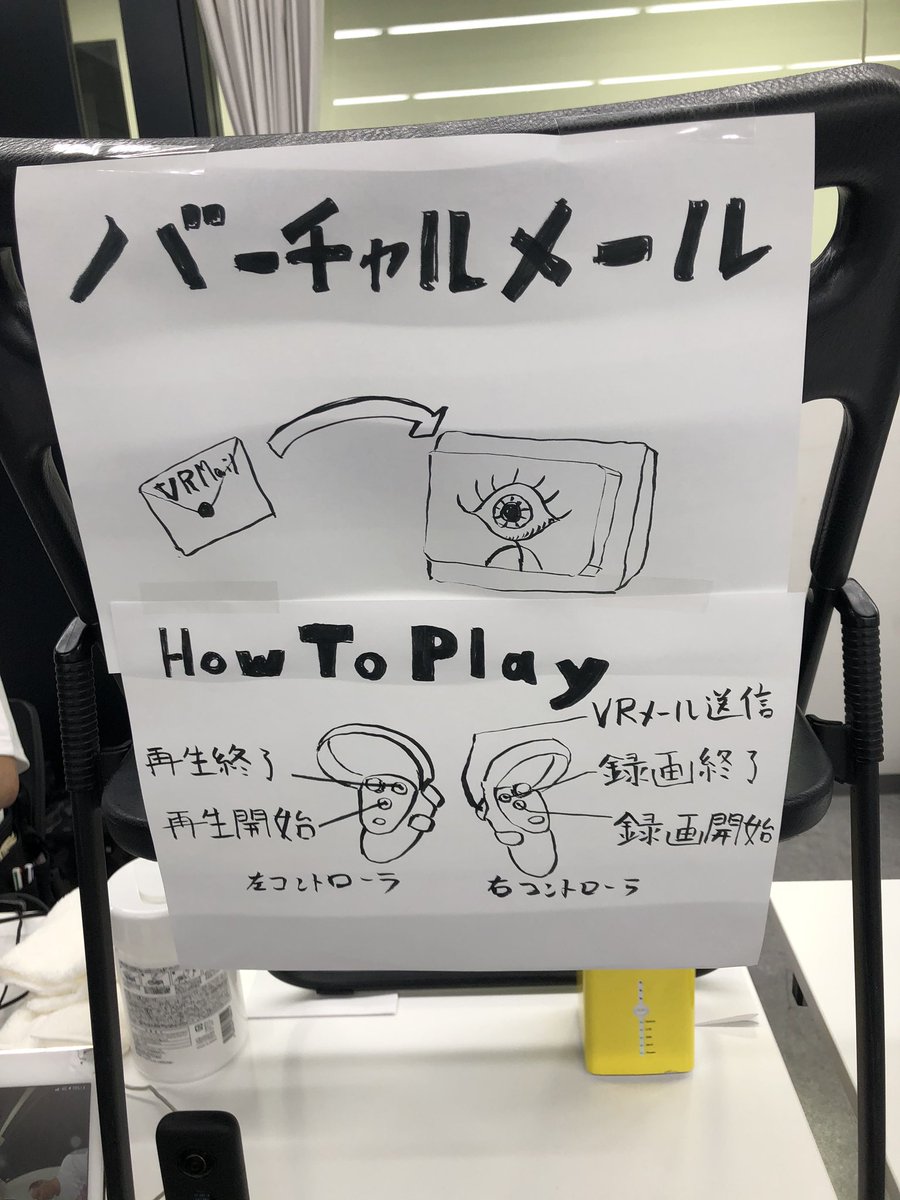 バーチャルメール
VR Mail
How To Play
VRメール送信
再生終了
録画終了
再生開始
録画開始
左コントローラ
右コントローラ